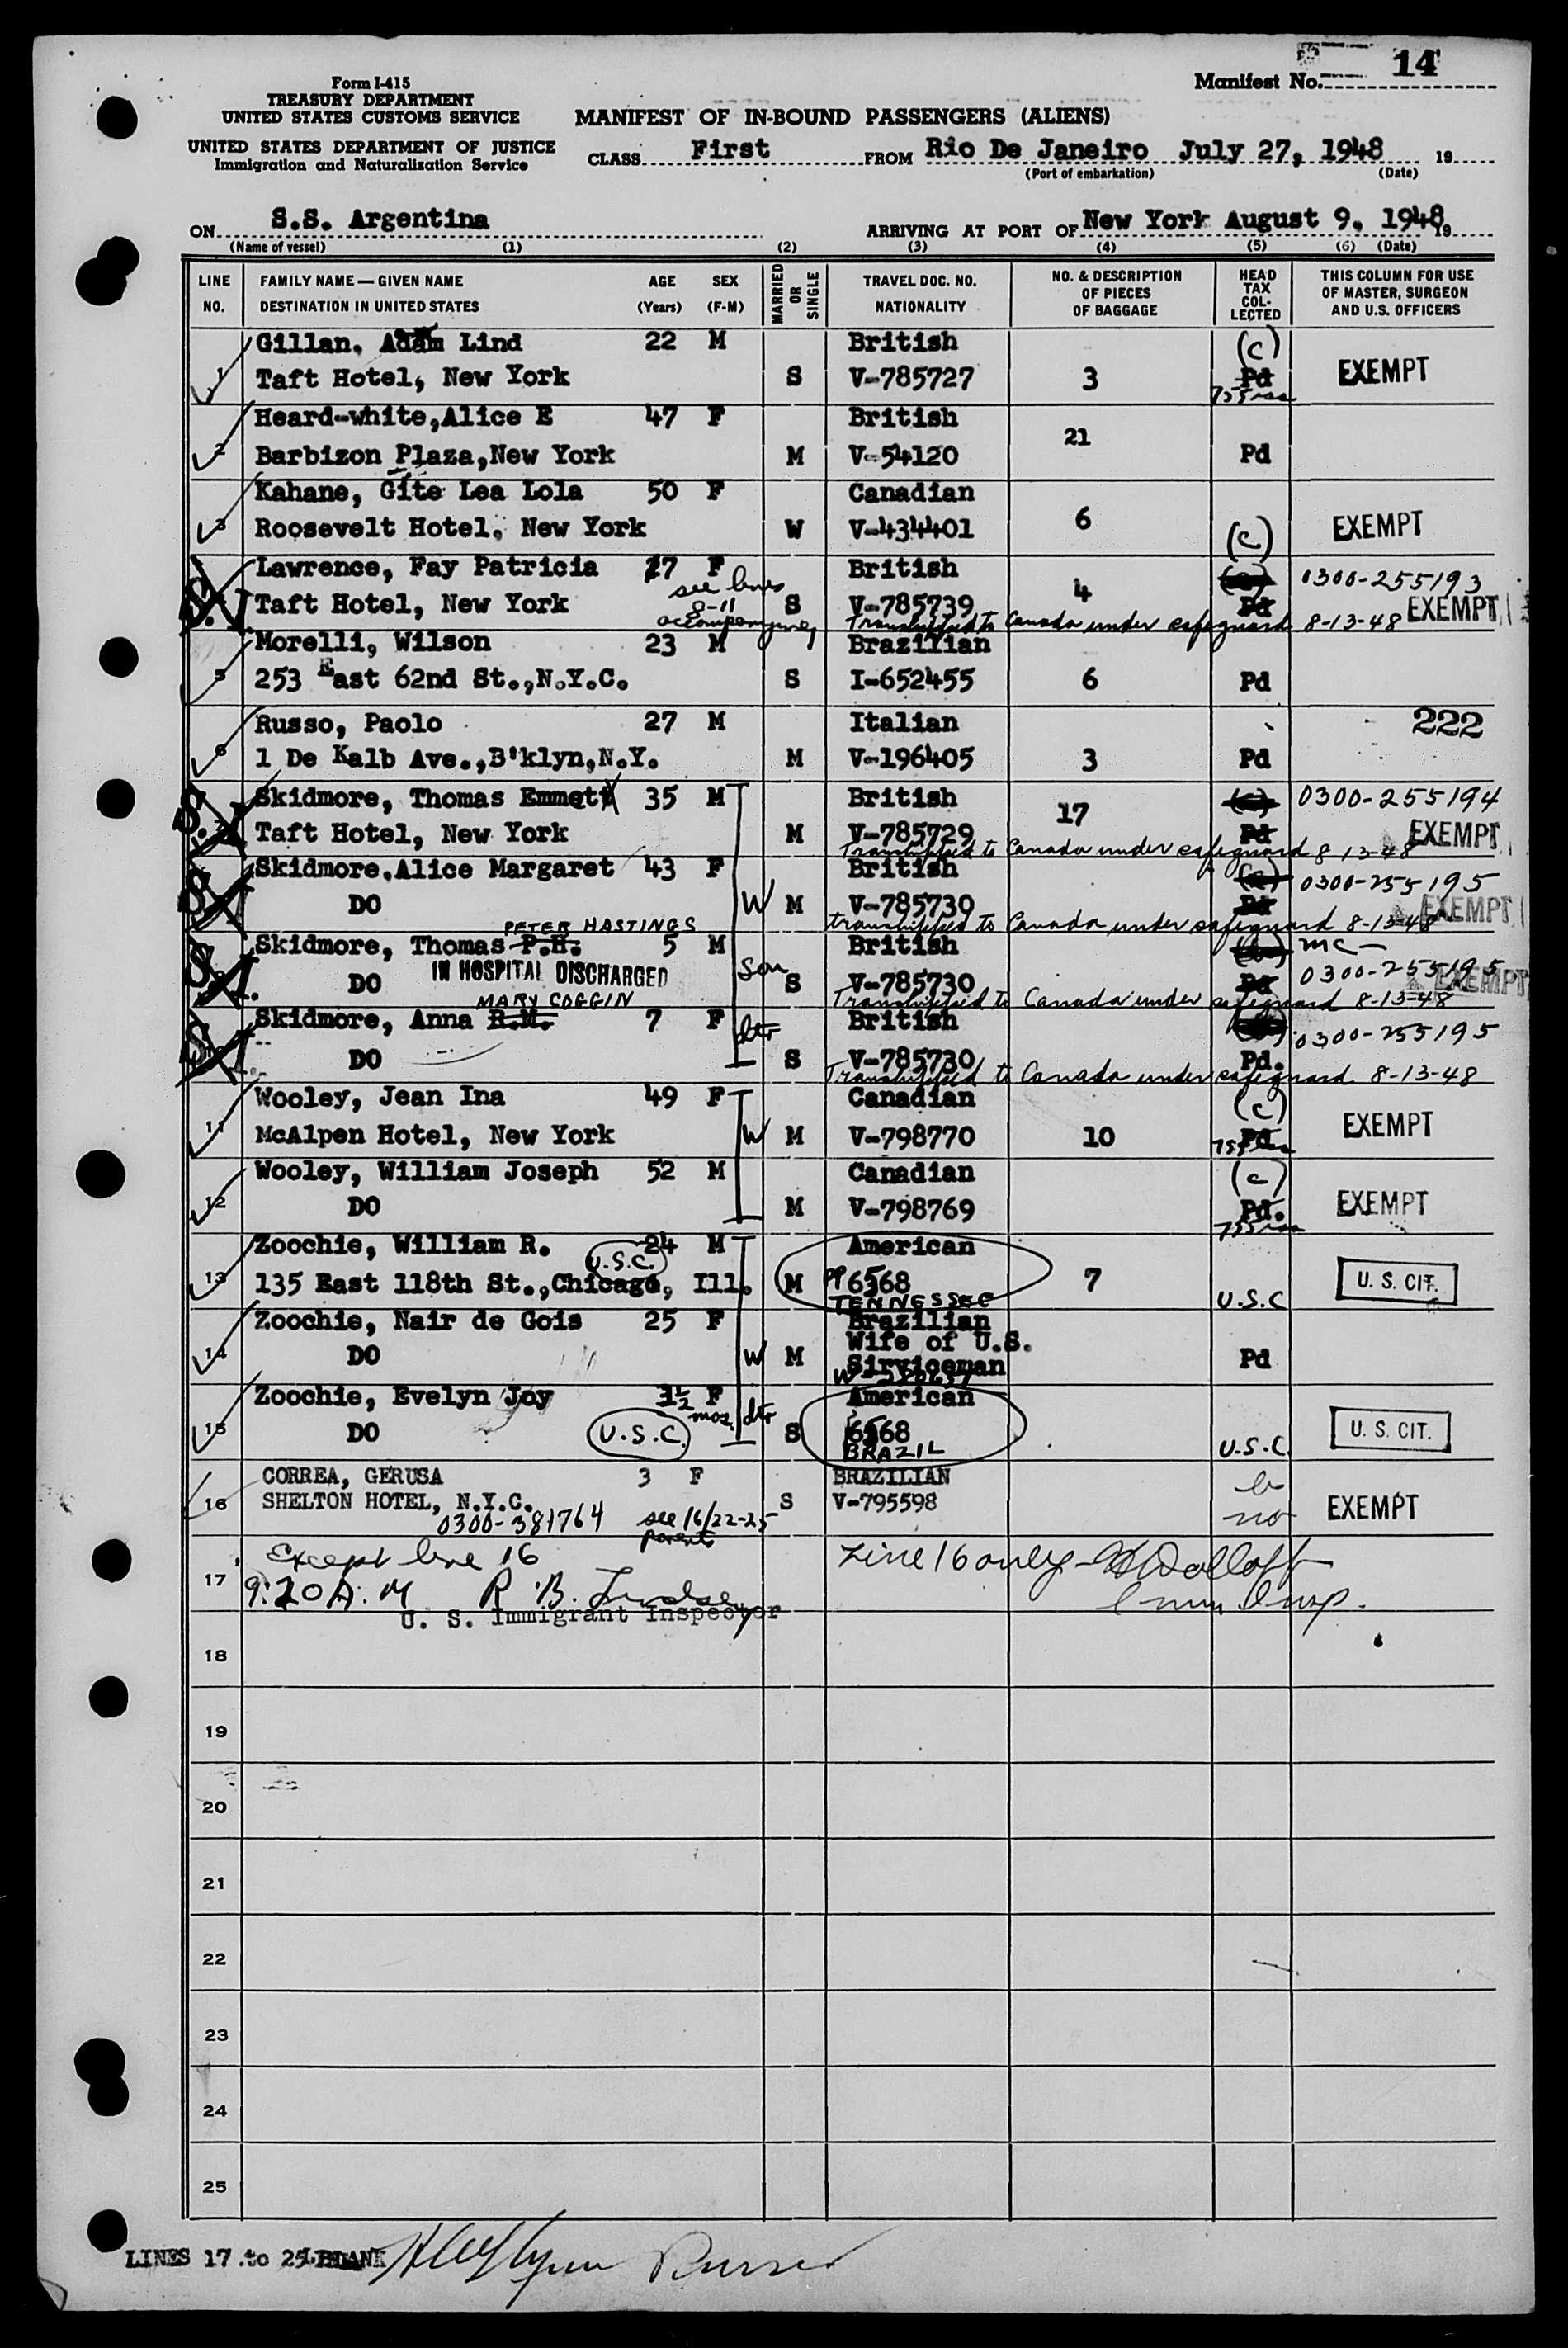 Manifest No. 14
Form I-415
TREASURY DEPARTMENT
UNITED STATES CUSTOMS SERVICE
UNITED STATES DEPARTMENT OF JUSTICE
Immigration and Naturalization Service
MANIFEST OF IN-BOUND PASSENGERS (ALIENS)
CLASS First FROM Rio De Janeiro July 27, 1948 19
(Port of embarkation) (Date)
ON S.S. Argentina ARRIVING AT PORT OF New York August 9, 1948 19
(Name of vessel) (1) (2) (3) (4) (5) (6) (Date)
LINE NO. FAMILY NAME — GIVEN NAME DESTINATION IN UNITED STATES AGE (Years) SEX (F-M) MARRIED OR SINGLE TRAVEL DOC. NO. NATIONALITY NO. & DESCRIPTION OF PIECES OF BAGGAGE HEAD TAX COL-LECTED THIS COLUMN FOR USE OF MASTER, SURGEON AND U.S. OFFICERS
Gillan, Adam Lind 22 M British (c)
1 Taft Hotel, New York S V-785727 3 Pd EXEMPT
Heard-white,Alice E 47 F British
2 Barbizon Plaza,New York M V-54120 21 Pd
Kahane, Gite Lea Lola 50 F Canadian
3 Roosevelt Hotel, New York W V-434401 6 (c) EXEMPT
Lawrence, Fay Patricia 17 F British 0300-255193
see lines 8-11 accompanying
Taft Hotel, New York S V-785739 4 Pd EXEMPT
Transhipped to Canada under safeguard 8-13-48
Morelli, Wilson 23 M Brazilian
5 253 East 62nd St.,N.Y.C. S I-652455 6 Pd
Russo, Paolo 27 M Italian 222
6 1 De Kalb Ave.,B'klyn,N.Y. M V-196405 3 Pd
Skidmore, Thomas Emmett 35 M British 0300-255194
Taft Hotel, New York M V-785729 17 Pd EXEMPT
Transhipped to Canada under safeguard 8-13-48
Skidmore,Alice Margaret 43 F British 0300-255195
DO W M V-785730 Pd EXEMPT
transhipped to Canada under safeguard 8-13-48
PETER HASTINGS
Skidmore, Thomas P.H. 5 M British mc
DO IN HOSPITAL DISCHARGED Son S V-785730 Pd 0300-255195 EXEMPT
Transhipped to Canada under safeguard 8-13-48
MARY COGGIN
Skidmore, Anna R.M. 7 F dtr British 0300-255195
DO S V-785730 Pd.
Transhipped to Canada under safeguard 8-13-48
Wooley, Jean Ina 49 F Canadian (c)
11 McAlpen Hotel, New York W M V-798770 10 Pd EXEMPT
Wooley, William Joseph 52 M Canadian (c)
12 DO M V-798769 Pd. EXEMPT
Zoochie, William R. 24 M American
U.S.C.
13 135 East 118th St.,Chicago, Ill. M PP 6568 7 U.S.C U. S. CIT.
TENNESSEE
Zoochie, Nair de Gois 25 F Brazilian
Wife of U.S.
14 DO W M Sirviceman Pd
Zoochie, Evelyn Joy 3½ mos. F dtr American
15 DO U.S.C. S 6568 U.S.C. U. S. CIT.
BRAZIL
CORREA, GERUSA 3 F BRAZILIAN
16 SHELTON HOTEL, N.Y.C. S V-795598 no EXEMPT
0300-381764 see 16/22-25 parents
Except line 16 Line 16 only
17 9:20 A.M R. B. Lindsey Imm Insp.
U. S. Immigrant Inspector
18
19
20
21
22
23
24
25
LINES 17 to 25 BLANK Purser